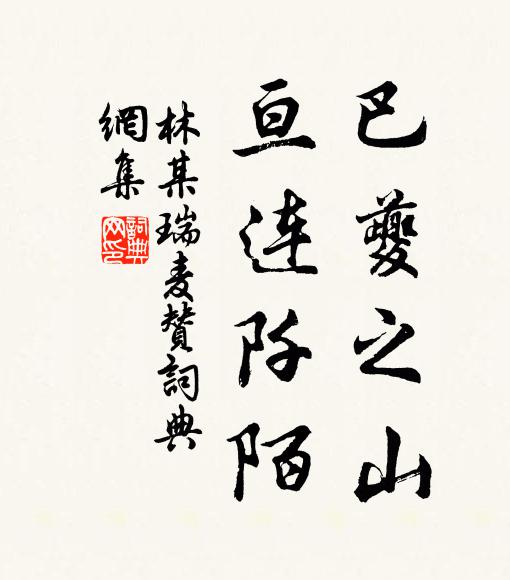 巴夔之山
亘连阡陌
林某瑞麦赞詞典
網集
詞典
网印